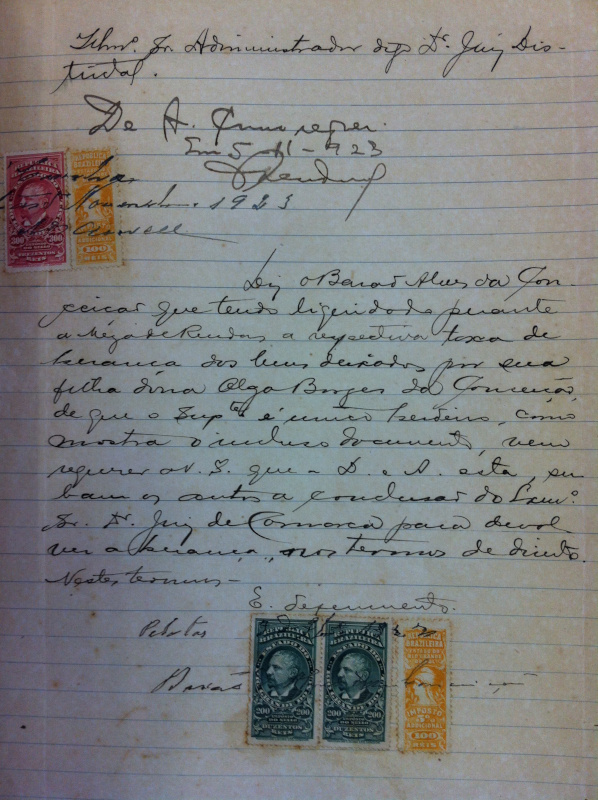 Illmo. Sr. Administrador digo Dr. Juiz Dis-
trital.
De A. Como requer.
Em 5-11-923
Novembro 1923
REPUBLICA
BRAZILEIRA
200 200
DUZENTOS
REIS
100
REIS
Diz o Barão Alves da Con-
ceição que tendo liquidado perante
a Meza de Rendas a respectiva taxa de
herança dos bens deixados por sua
filha dóna Olga Borges da Conceição,
de que o Suppte é unico herdeiro, como
mostra o incluso documento, vem
requerer a V. S. que D. e A. esta, su
bam os autos a conclusão do Exmo.
Sr. Dr. Juiz de Comarca para devol-
ver a herança, nos termos de direito.
Nestes termos
E. deferimento.
Pelotas
Barão
REPUBLICA
BRAZILEIRA
200 200
DUZENTOS
REIS
REPUBLICA
BRAZILEIRA
200 200
DUZENTOS
REIS
BRAZILEIRA
IMPOSTO
ADDICIONAL
100
REIS